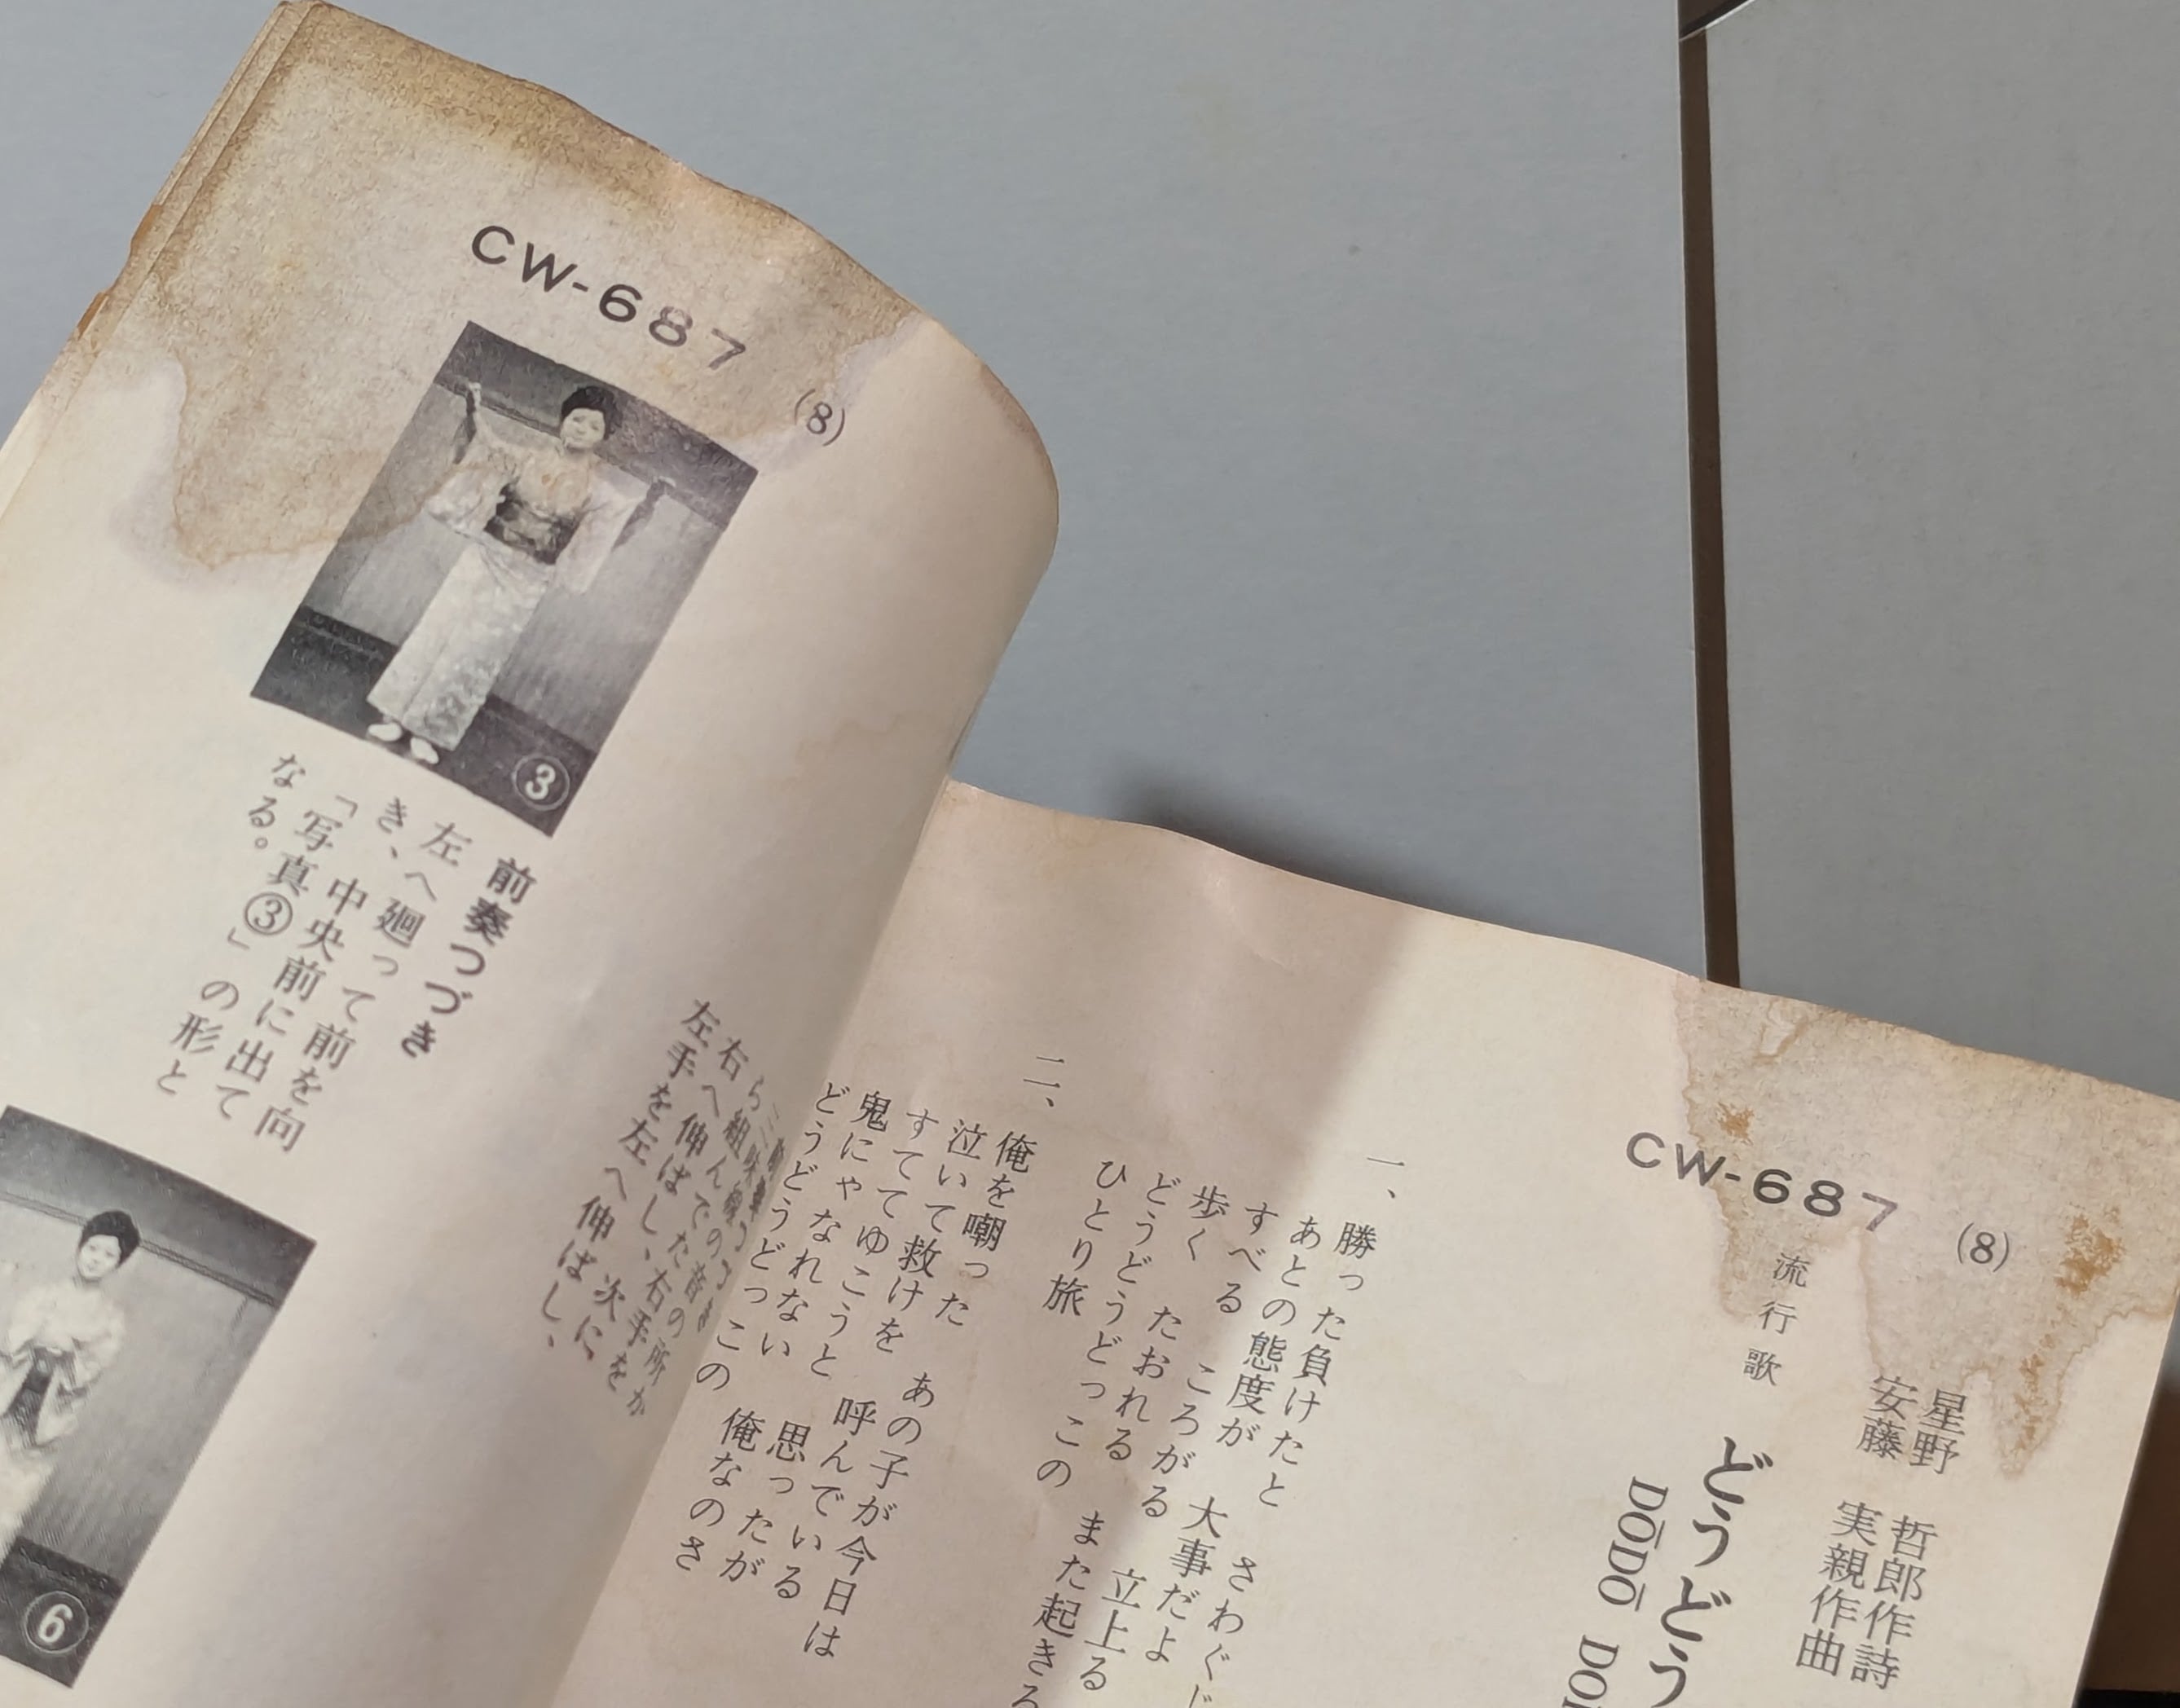 CW-687
(8)
流行歌
星野 哲郎作詩
安藤 実親作曲
どうどう
DŌDŌ
一、
勝った負けたと さわぐ
あとの態度が 大事だよ
すべる ころがる 立上る
歩く たおれる また起きる
どうどうどっこの
ひとり旅
二、
俺を嘲った あの子が今日は
泣いて救けを 呼んでいる
すててゆこうと 思ったが
鬼にゃなれない 俺なのさ
どうどうどっこの
CW-687
(8)
③
前奏つづき
左へ廻って前を向
き、中央前に出て
「写真③」の形と
なる。
右へ伸ばし、右手を
左手を左へ伸ばし、
次に、
⑥